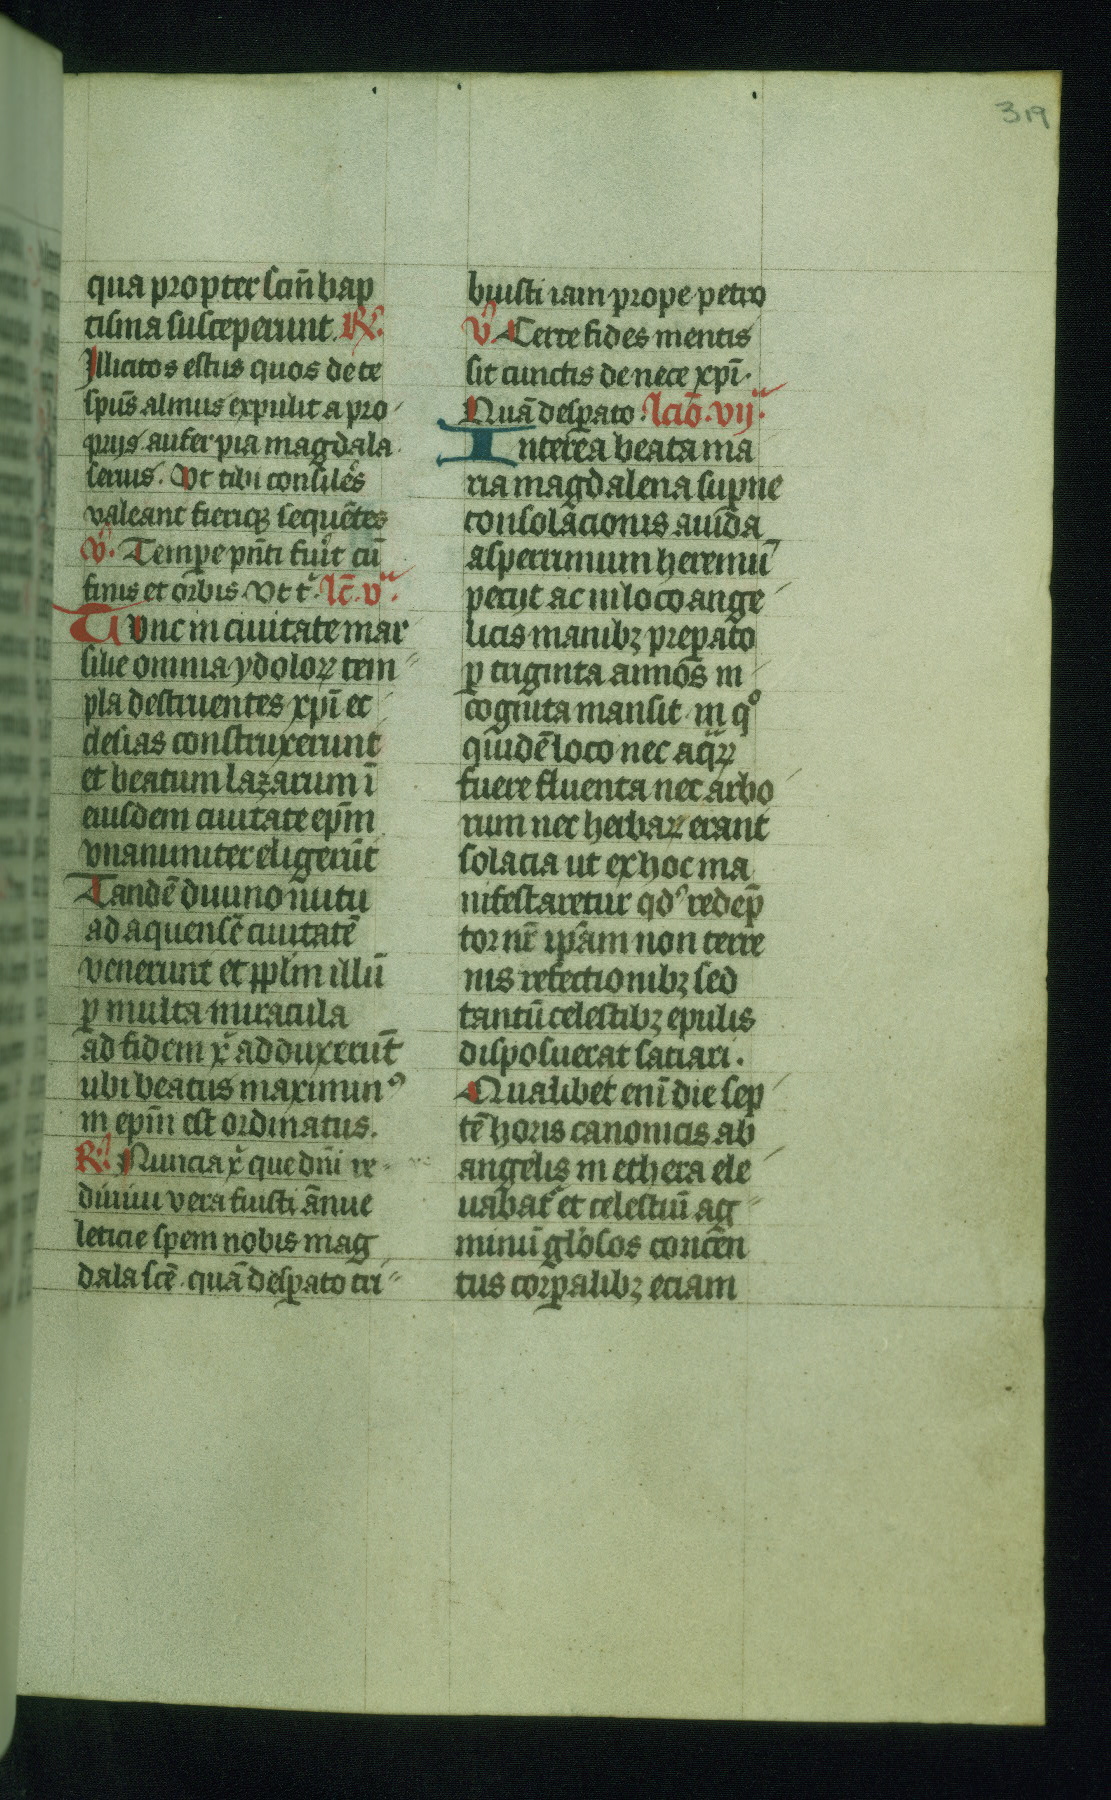 319
qua propter scm̄ bap
tisma susceperunt. R̷.
Illicitos estus quos de te
sp̄us almus expulit a pro
prijs aufer pia magdala
seruis. Vt tibi consiles
valeant fierique sequētes
v̷. Tempe pn̄ti fuit cū
finis et orbis. Vt t. lc̄. v.
Tvnc in ciuitate mar
silie omnia ydoloꝝ tem
pla destruentes xp̄i ec
clesias construxerunt
et beatum lazarum ī
eiusdem ciuitate ep̄m
vnanimiter eligerūt
Tandē diuino nutu
ad aquensē ciuitatē
venerunt et pp̄lm illū
ꝑ multa miracula
ad fidem x̄ adduxerūt
ubi beatus maximinꝰ
in ep̄m est ordinatus.
R̷. Nuncia x̄ que dn̄i re
diuiui vera fuisti ānue
leticie spem nobis mag
dala sc̄e. quā desꝑato tri
buisti iam prope petro
v̷. Certe fides mentis
sit cunctis de nece xp̄i.
Quā desꝑato. lcīo. vij.
Interea beata ma
ria magdalena suꝑne
consolacionis auida
asperrimum heremū
pecijt ac in loco ange
licis manibꝫ preꝑato
ꝑ triginta annos in
cognita mansit. in qͦ
quidē loco nec aquaꝝ
fuere fluenta nec arbo
rum nec herbaꝝ erant
solacia ut ex hoc ma
nifestaretur qd' redēp
tor nr̄ ip̄am non terre
nis refectionibꝫ sed
tantū celestibꝫ epulis
disposuerat satiari.
Qualibet enī die sep
tē horis canonicis ab
angelis in ethera ele
uabat' et celestiū ag
minū gl'osos concen
tus corꝑalibꝫ eciam